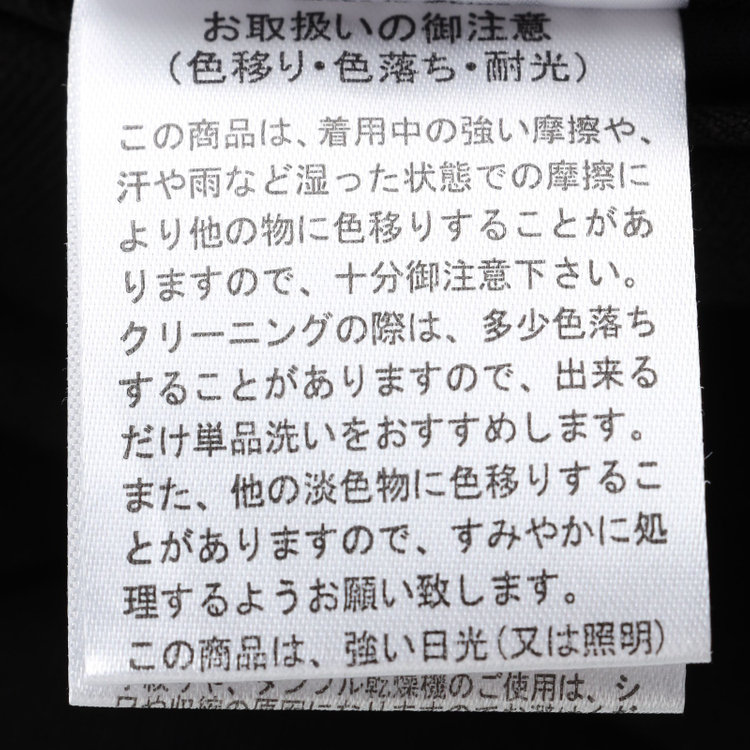 お取扱いの御注意
(色移り・色落ち・耐光)
この商品は、着用中の強い摩擦や、
汗や雨など湿った状態での摩擦に
より他の物に色移りすることがあ
りますので、十分御注意下さい。
クリーニングの際は、多少色落ち
することがありますので、出来る
だけ単品洗いをおすすめします。
また、他の淡色物に色移りするこ
とがありますので、すみやかに処
理するようお願い致します。
この商品は、強い日光(又は照明)
乾燥機のご使用は、シ